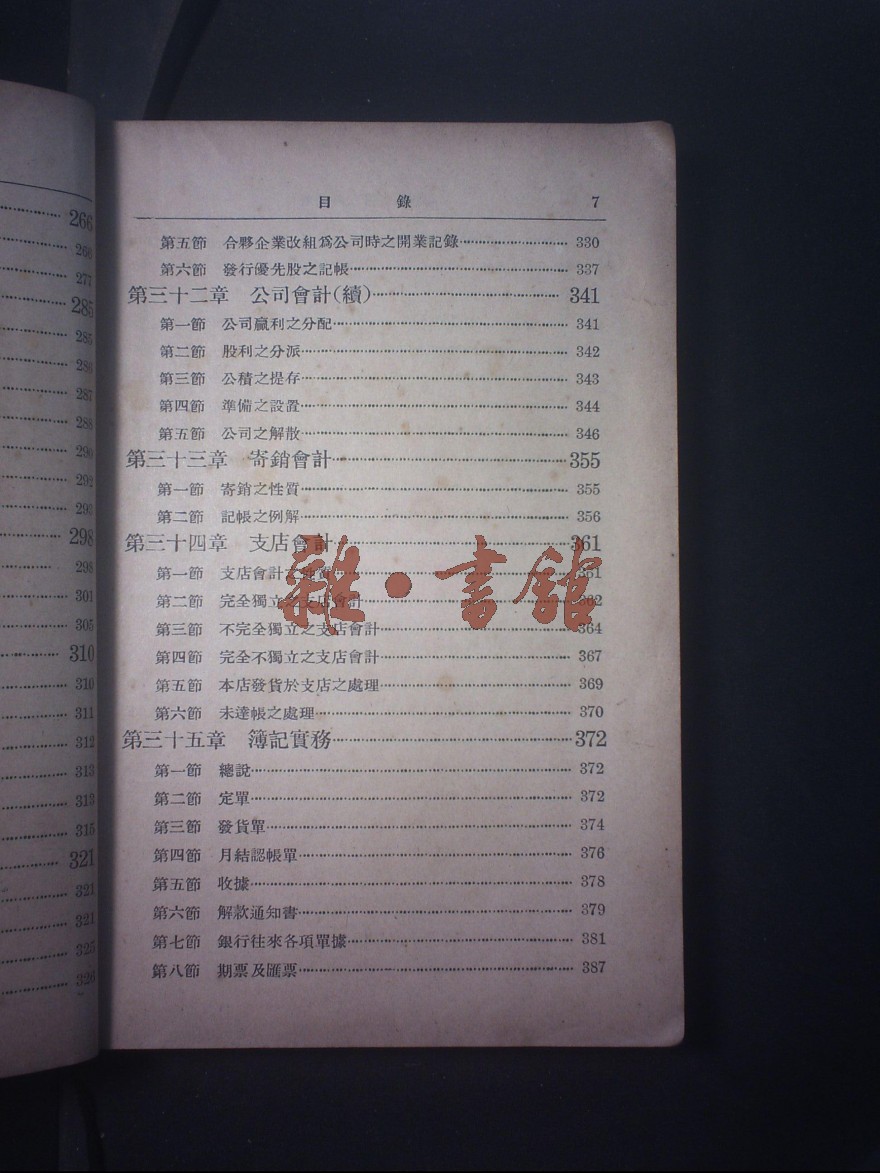 266
266
277
285
285
286
287
288
290
292
293
298
298
301
305
310
310
311
312
313
313
315
321
321
321
325
326
目 錄 7
第五節 合夥企業改組爲公司時之開業記錄 330
第六節 發行優先股之記帳 337
第三十二章 公司會計(續) 341
第一節 公司贏利之分配 341
第二節 股利之分派 342
第三節 公積之提存 343
第四節 準備之設置 344
第五節 公司之解散 346
第三十三章 寄銷會計 355
第一節 寄銷之性質 355
第二節 記帳之例解 356
第三十四章 支店會計 361
第一節 支店會計之性質 361
第二節 完全獨立之支店會計 362
第三節 不完全獨立之支店會計 364
第四節 完全不獨立之支店會計 367
第五節 本店發貨於支店之處理 369
第六節 未達帳之處理 370
第三十五章 簿記實務 372
第一節 總說 372
第二節 定單 372
第三節 發貨單 374
第四節 月結認帳單 376
第五節 收據 378
第六節 解款通知書 379
第七節 銀行往來各項單據 381
第八節 期票及匯票 387
雜·書館